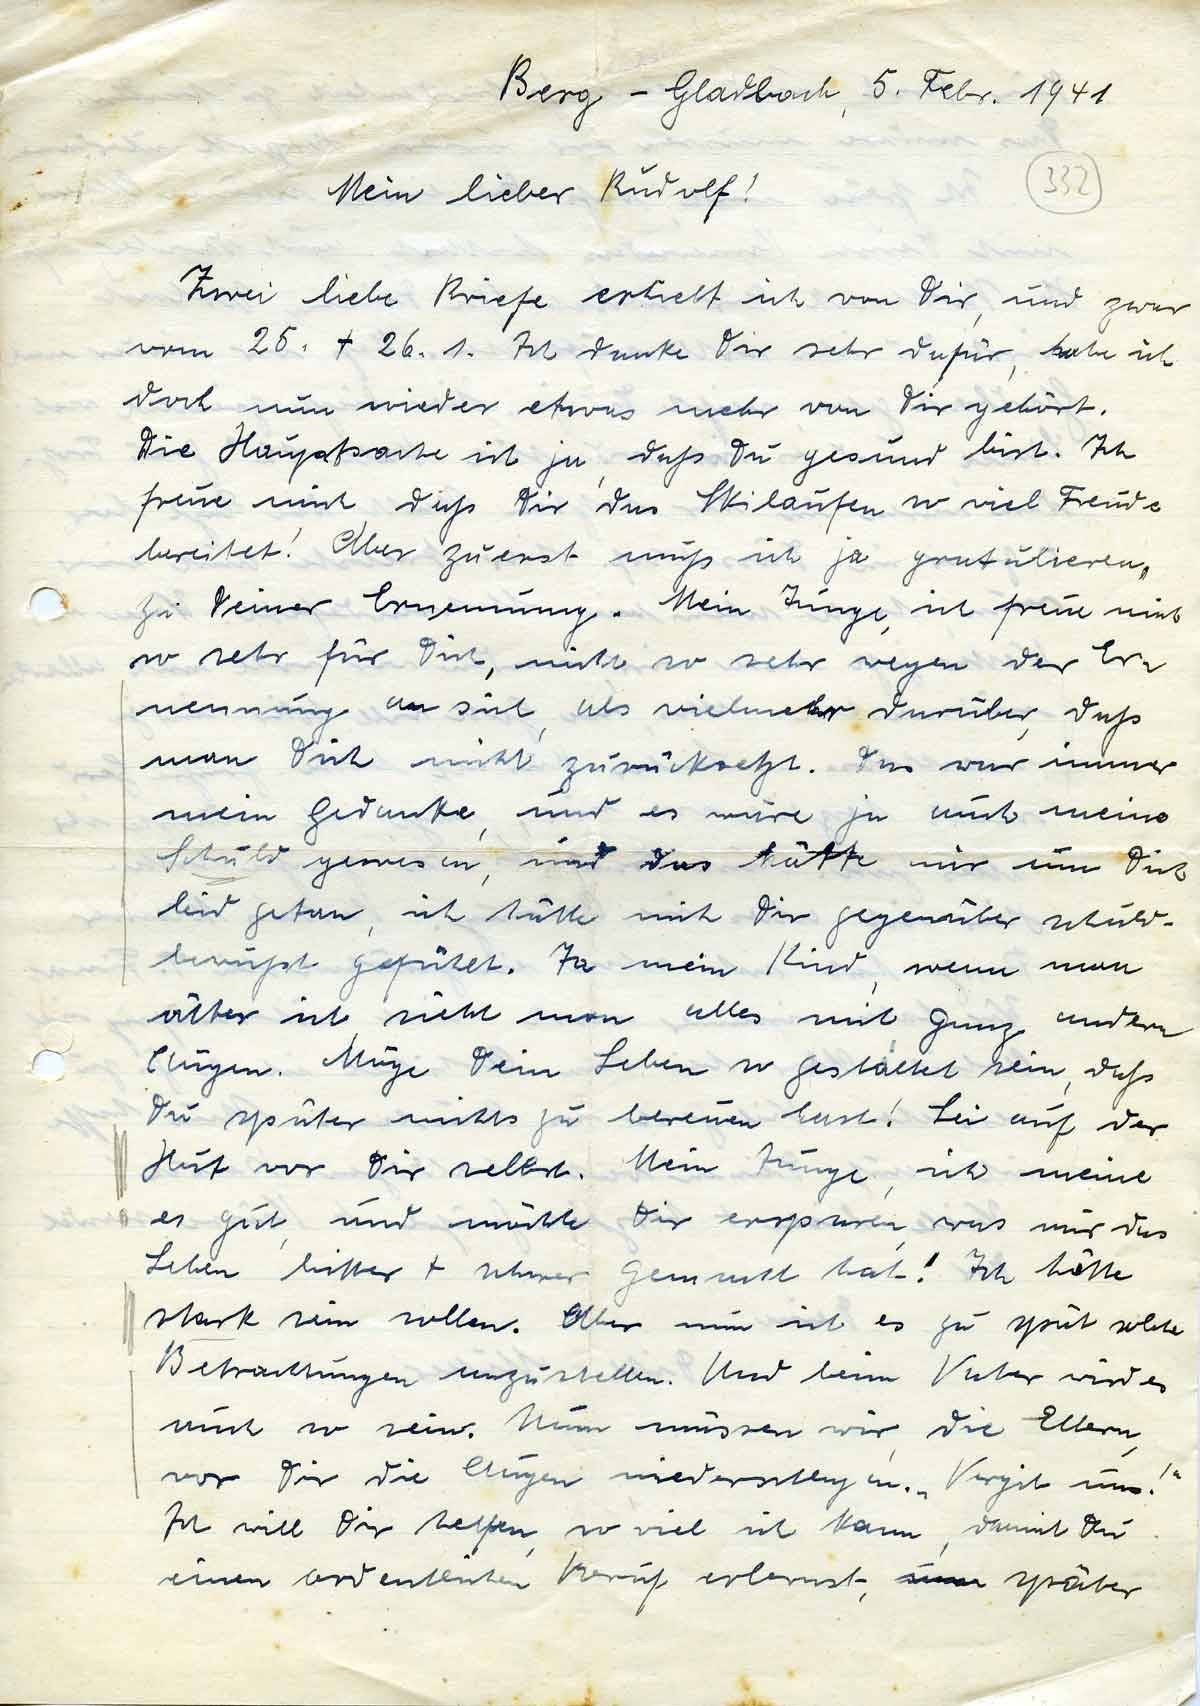 Berg - Gladbach, 5. Febr. 1941
332
Mein lieber Rudolf!
Zwei liebe Briefe erhielt ich von Dir, und zwar
vom 25. + 26. 1. Ich danke Dir sehr dafür, habe ich
doch nun wieder etwas mehr von Dir gehört.
Die Hauptsache ist ja, daß Du gesund bist. Ich
freue mich, daß Dir das Skilaufen so viel Freude
bereitet! Aber zuerst muß ich ja gratulieren,
zu Deiner Ernennung. Mein Junge, ich freue mich
so sehr für Dich, nicht so sehr wegen der Er-
nennung an sich, als vielmehr darüber, daß
man Dich nicht zurücksetzt. Das war immer
mein Gedanke, und es wäre ja auch meine
Schuld gewesen, und das hätte mir um Dich
leid getan, ich hätte mich Dir gegenüber schuld-
bewußt gefühlt. Ja mein Kind, wenn man
älter ist, sieht man alles mit ganz andern
Augen. Möge Dein Leben so gestaltet sein, daß
Du später nichts zu bereuen hast! Sei auf der
Hut vor Dir selbst. Mein Junge, ich meine
es gut, und möchte Dir ersparen, was mir das
Leben bitter + schwer gemacht hat! Ich hätte
stark sein sollen. Aber nun ist es zu spät solche
Betrachtungen anzustellen. Und beim Vater wird es
auch so sein. Nun müssen wir, die Eltern,
vor Dir die Augen niederschlagen. „Vergib uns!“
Ich will Dir helfen, so viel ich kann, damit Du
einen ordentlichen Beruf erlernst, später